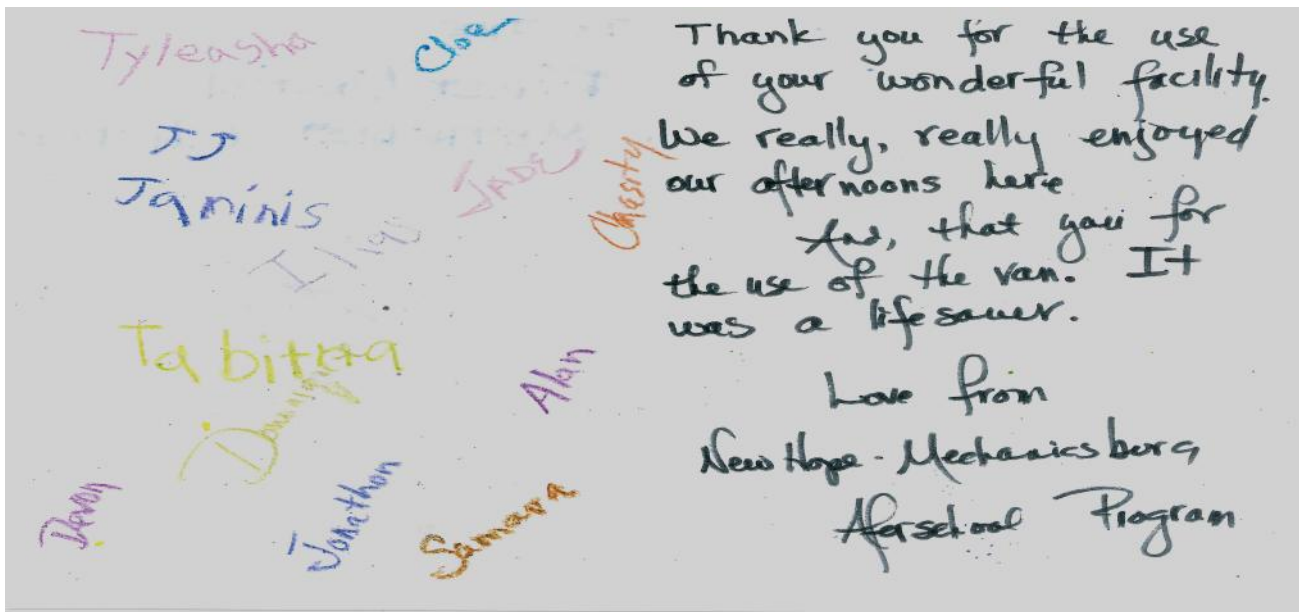 Tyleasha
Cloe
JJ
Janinis
JADE
Chasity
Tabitha
Alan
Devon
Jonathon
Samara
Thank you for the use
of your wonderful facility.
We really, really enjoyed
our afternoons here
And, that you for
the use of the van. It
was a lifesaver.
Love from
New Hope - Mechanicsburg
Aferschool Program